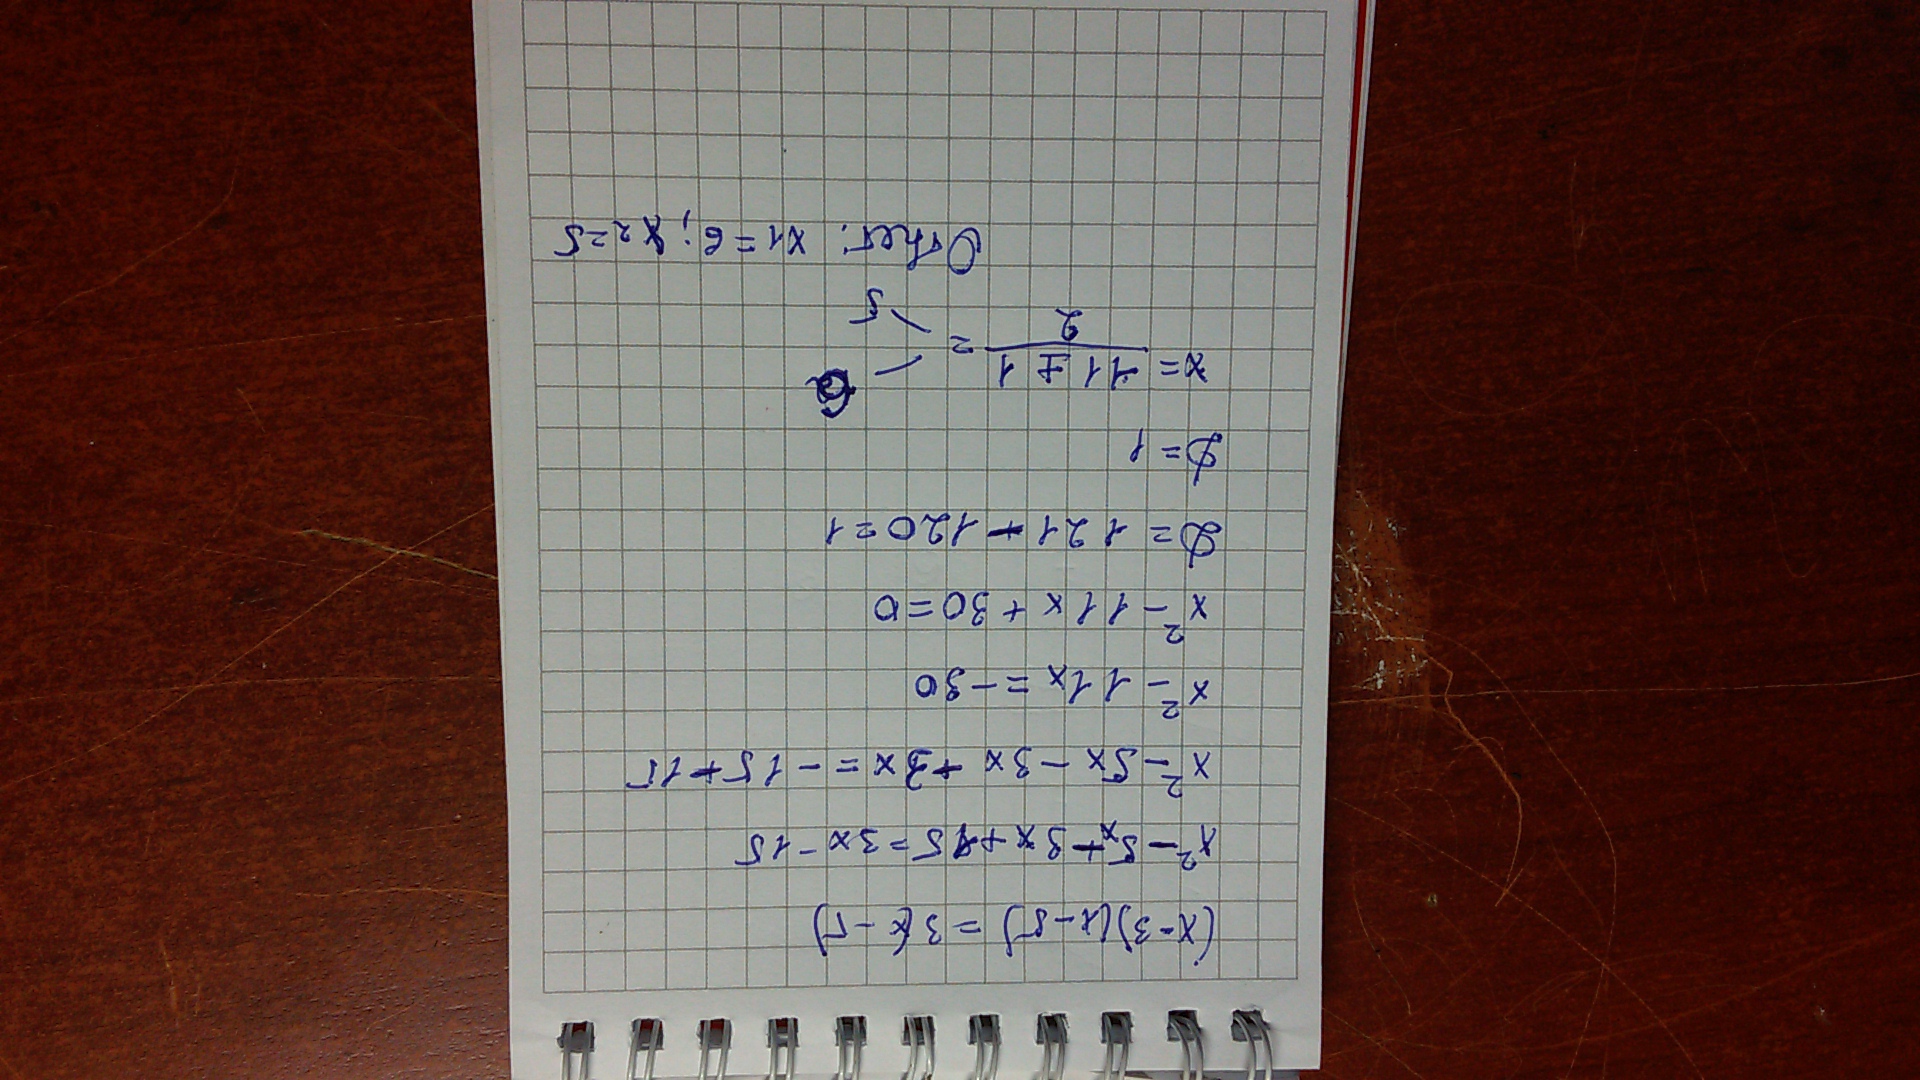 (x-3)(x-5) = 3(x-5)
x²-5x+3x+15=3x-15
x²-5x-3x+3x=-15+15
x²-11x=-30
x²-11x+30=0
D=121-120=1
D=1
x= 11±1 / 2 = 6 5
Ответ: x1=6; x2=5